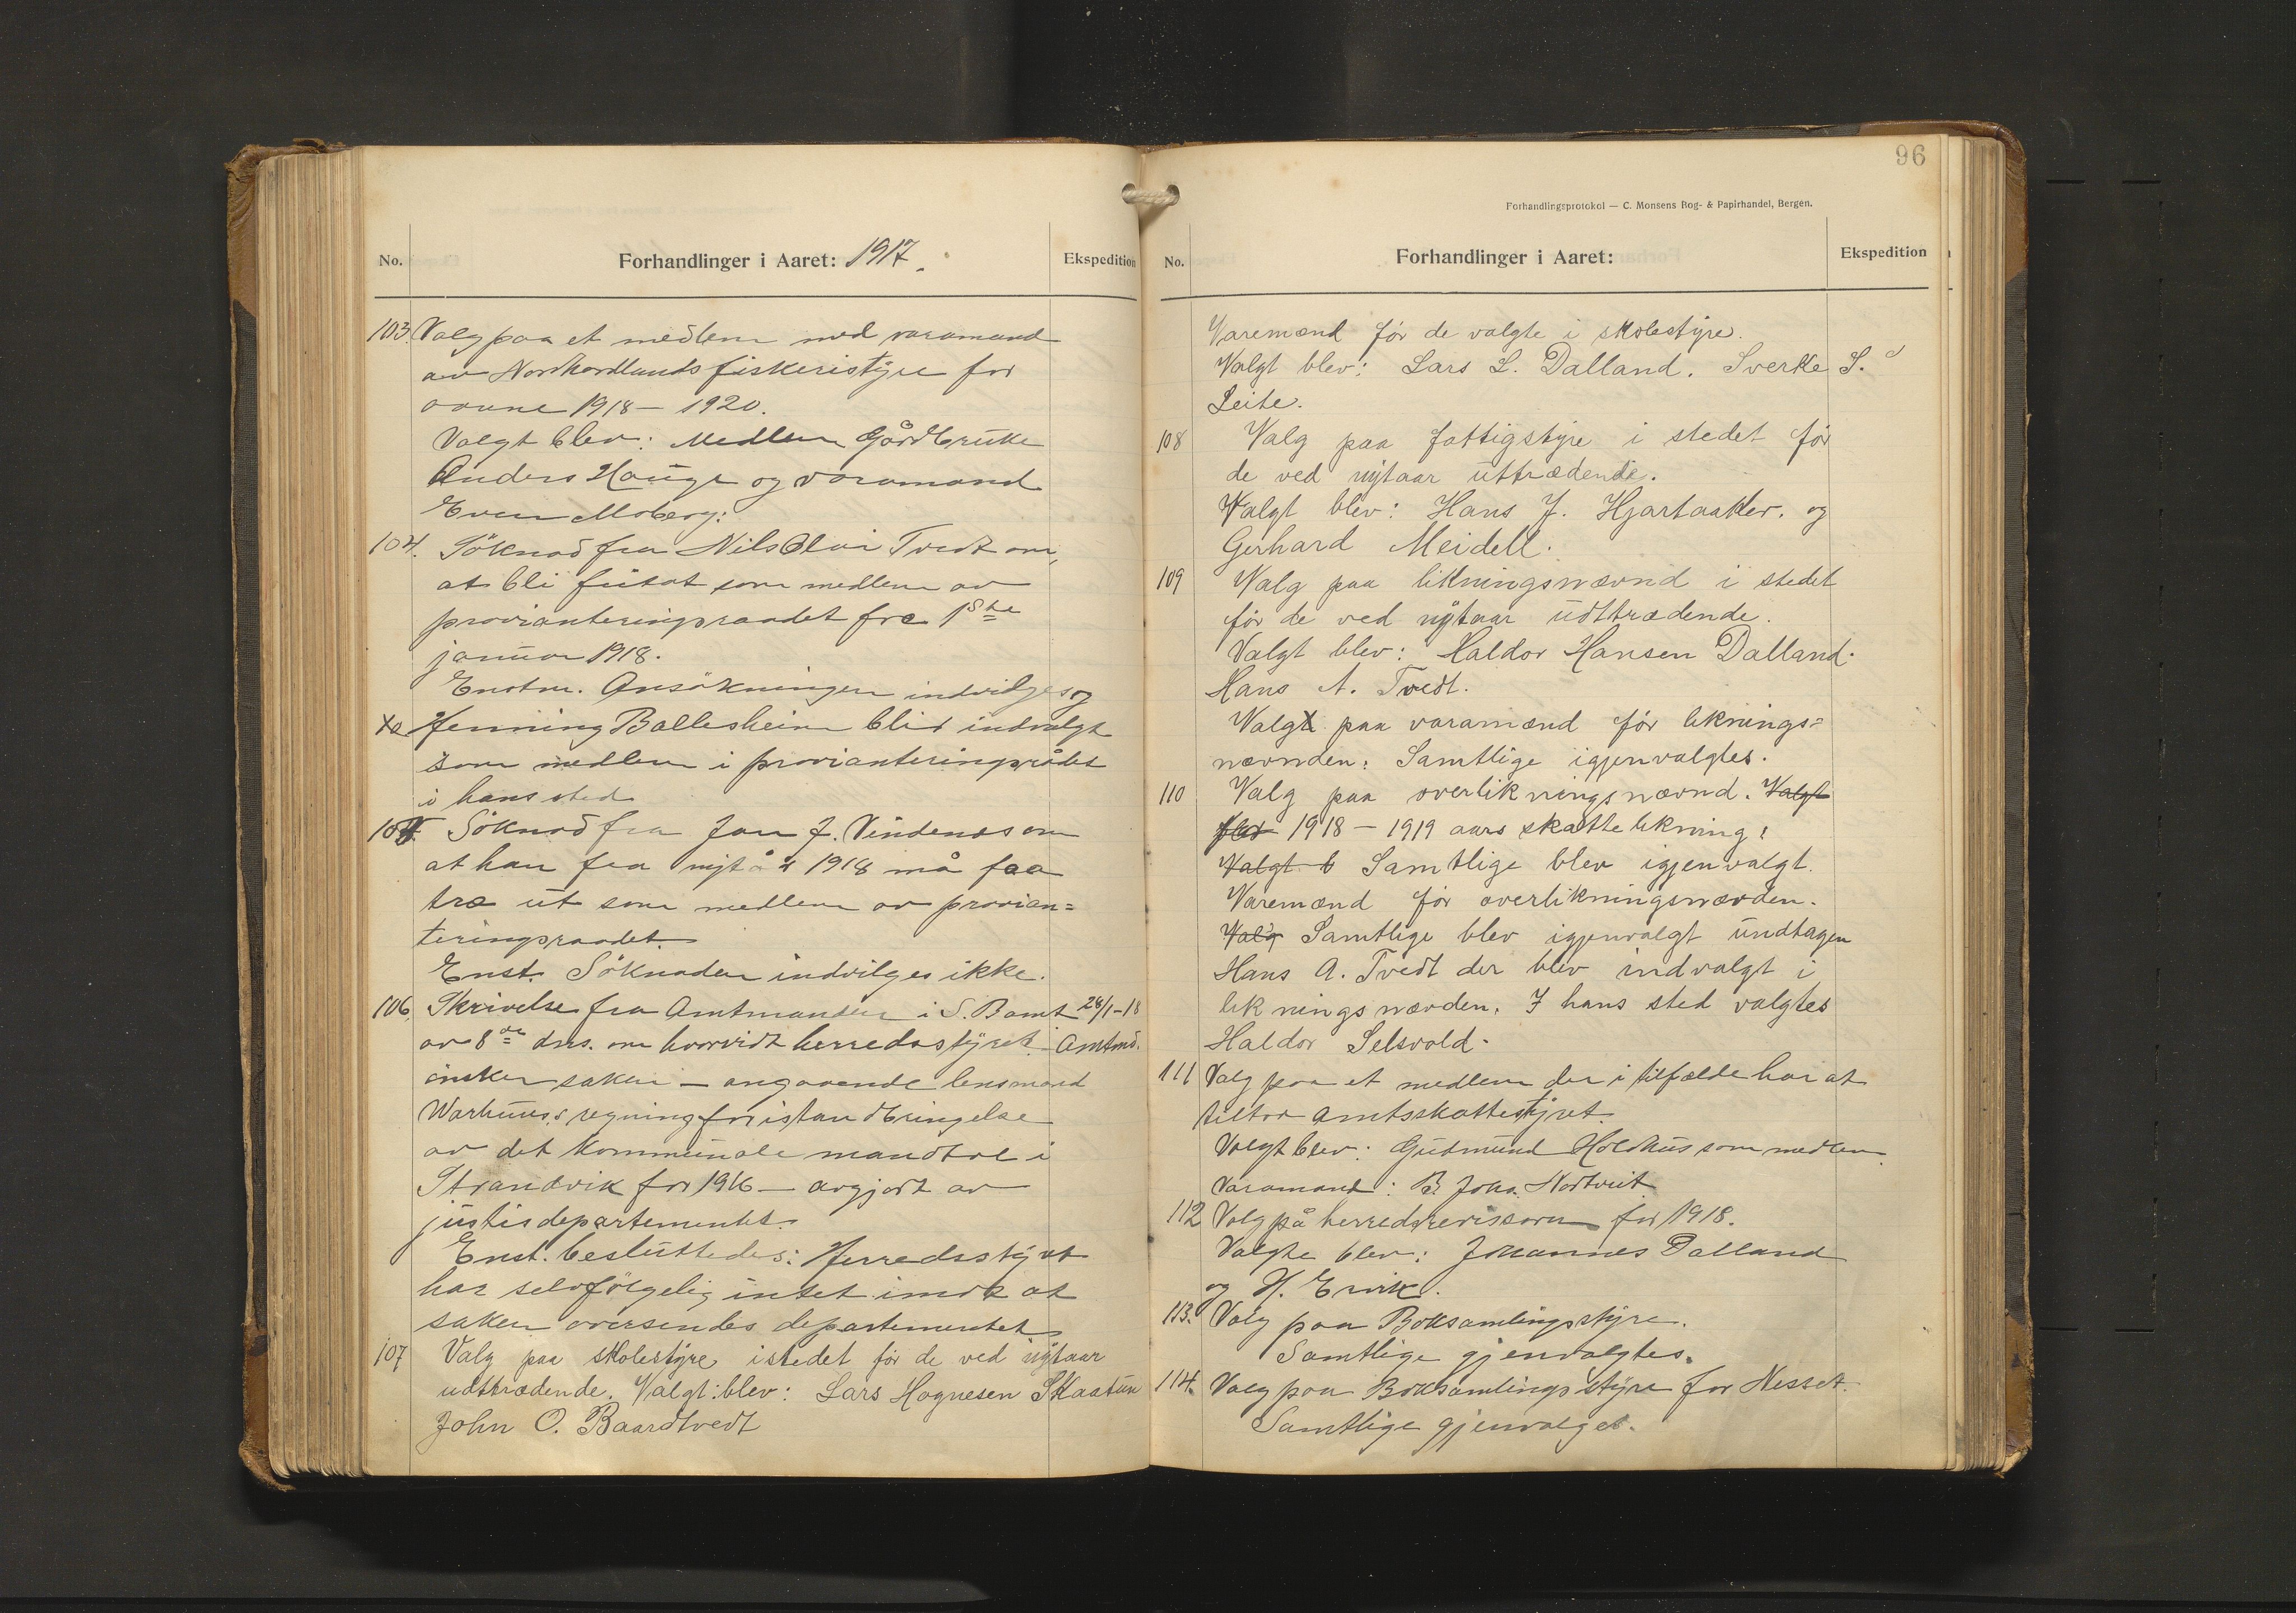 No.
Forhandlinger i Aaret: 1917.
Ekspedition
103. Valg paa et medlem med varamand
av Nordhordlands fiskeristyre for
aarene 1918 – 1920.
Valgt blev: Medlem Gårdbruke
Anders Hauge og varamand
Even Moberg:
104. Söknad fra Nils Olai Tvedt om,
at bli fritat som medlem av
provianteringsraadet fra 1ste
januar 1918.
Enstm. Ansökningen indvilges og
Henning Ballesheim blir indvalgt
som medlem i provianteringsrådet
i hans sted
105. Söknad fra Jon J. Vindenes om
at han fra nytår 1918 må faa
træ ut som medlem av provian=
teringsraadet.
Enst. Söknaden indvilges ikke.
106. Skrivelse fra Amtmanden i S. B amt 24/1-18
av 8de dns. om hvorvidt herredsstyret Amtmd.
önsker saken – angaaende lensmand
Warhuus's regning for istandbringelse
av det kommunale mandtal i
Strandvik for 1916 – avgjort av
justisdepartementet.
Enst. besluttedes: Herredsstyret
har selvfölgelig intet imot at
saken oversendes departementet
107 Valg paa skolestyre istedet för de ved nytaar
udttrædende. Valgt blev: Lars Hognesen Skaatun
John O. Baardtvedt
96
Forhandlingsprotokol — C. Monsens Bog- & Papirhandel, Bergen.
No.
Forhandlinger i Aaret:
Ekspedition
Varemænd för de valgte i skolestyre.
Valgt blev: Lars L. Dalland. Sverke S.
Leite.
108 Valg paa fattigstyre i stedet för
de ved nytaar uttrædende.
Valgt blev: Hans J. Hjartaaker. og
Gerhard Meidell.
109 Valg paa likningsnævnd i stedet
för de ved nytaar udttrædende.
Valgt blev: Haldor Hansen Dalland.
Hans A. Tvedt.
Valgt paa varamænd för liknings=
nævnden: Samtlige igjenvalgtes.
110 Valg paa overlikningsnævnd. Valgt
for 1918 – 1919 aars skattelikning:
Valgt b Samtlige blev igjenvalgt.
Varemænd för overlikningsnævden.
Valg Samtlige blev igjenvalgt undtagen
Hans A. Tvedt der blev indvalgt i
likningsnævden. I hans sted valgtes
Haldor Selsvold.
111 Valg paa et medlem der i tilfælde har at
tiltræ amtsskattestyret.
Valgt blev: Gudmund Holdhus som medlem.
Varamand: B. Johs. Nortveit
112 Valg på herredsrevisorer for 1918.
Valgte blev: Johannes Dalland
og H. Ervik.
113. Valg paa Boksamlingsstyre.
Samtlige gjenvalgtes.
114. Valg paa Boksamlingsstyre for Nesset.
Samtlige gjenvalget.